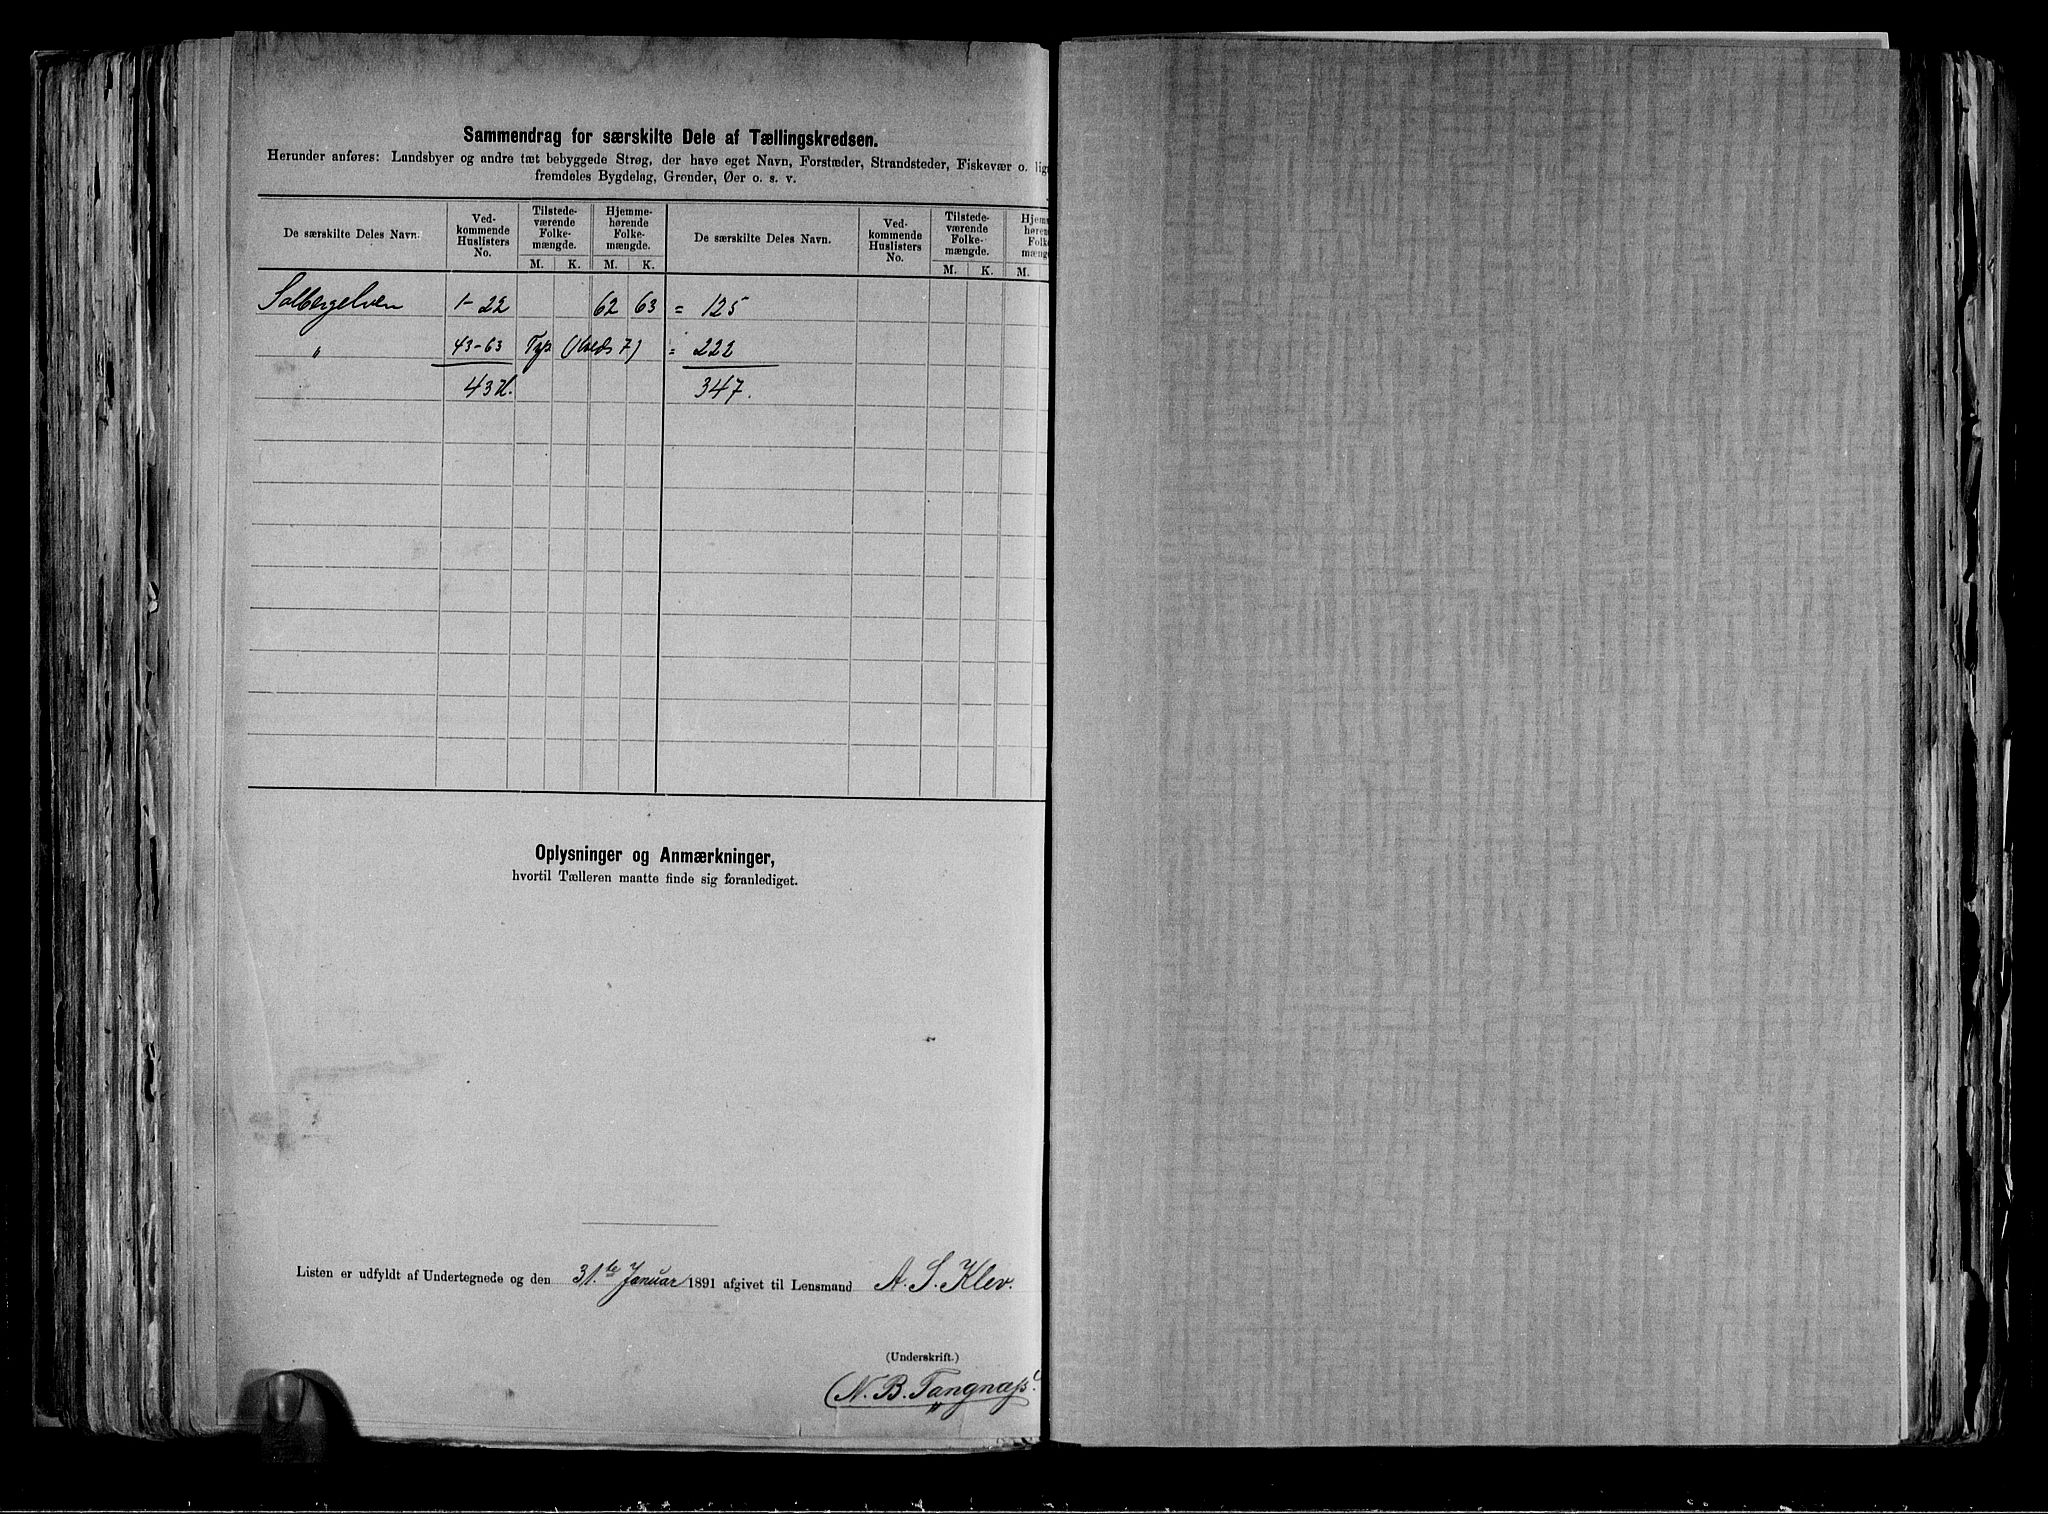 Sammendrag for særskilte Dele af Tællingskredsen.
Herunder anføres: Landsbyer og andre tæt bebyggede Strøg, der have eget Navn, Forstæder, Strandsteder, Fiskevær o. lig
fremdeles Bygdeløg, Grender, Øer o. s. v.
De særskilte Deles Navn. Ved-kommende Huslisters No. Tilstede-værende Folke-mængde. Hjemme-hørende Folke-mængde. De særskilte Deles Navn. Ved-kommende Huslisters No. Tilstede-værende Folke-mængde. Hjem høren Folk mængd
M. K. M. K. M. K. M.
Solbergelven 1-22 62 63 = 125
" 43-63 (Kreds 7) = 222
43 H. 347.
Oplysninger og Anmærkninger,
hvortil Tælleren maatte finde sig foranlediget.
Listen er udfyldt af Undertegnede og den 31.te Januar 1891 afgivet til Lensmand A. S. Klev.
(Underskrift.)
N. B. Tangnæss